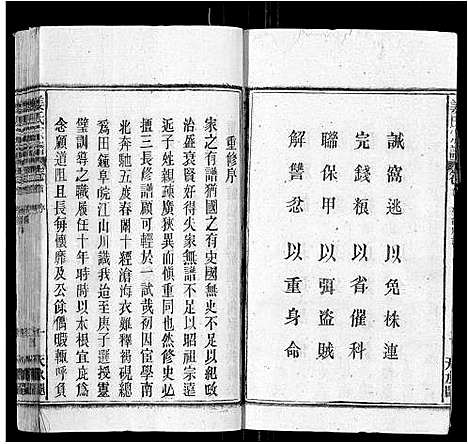 誡窩逃以免株連
完錢粮以省催科
聯保甲以弭盜賊
解讐忿以重身命
重修序
家之有譜猶國之有史國無史不足以紀政
治盛衰賢奸得失家無譜不足以昭祖宗遠
近子姓親疎廣狹異而愼重同也然修史必
擅三長修譜顧可輕於一試哉初因宦學南
北奔馳五度春闈十經滄海衣雞釋褐硯總
爲田鐘阜皖江山川識我迨至庚子選授靈
璧訓導之職履任十年時時以木根宜庇爲
念顧道阻且長每懷靡及公餘偶暇輒呼負